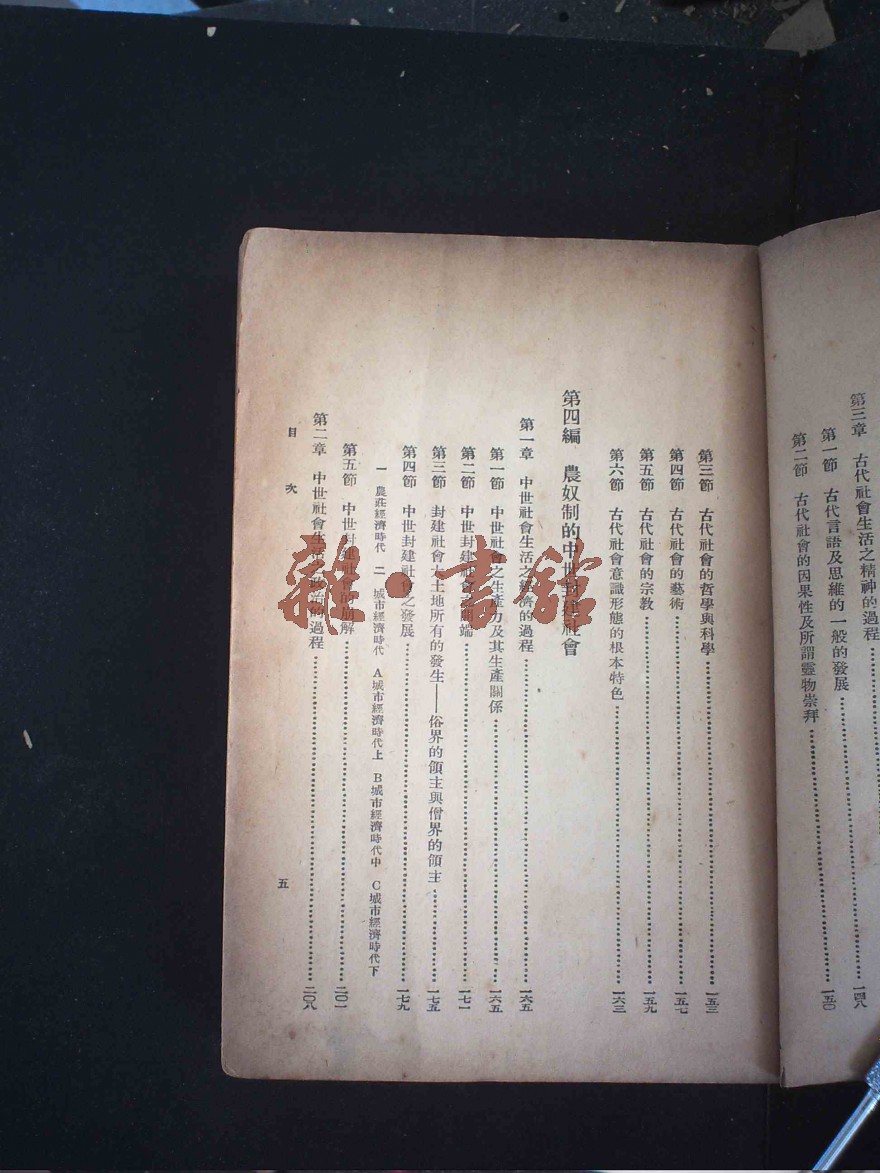 第三章 古代社會生活之精神的過程……一四八
第一節 古代言語及思維的一般的發展……一五〇
第二節 古代社會的因果性及所謂靈物崇拜……
第三節 古代社會的哲學與科學……一五三
第四節 古代社會的藝術……一五七
第五節 古代社會的宗教……一五九
第六節 古代社會意識形態的根本特色……一六三
第四編 農奴制的中世封建社會
第一章 中世社會生活之經濟的過程……一六五
第一節 中世社會之生產力及其生產關係……一六五
第二節 中世封建社會之開端……一七一
第三節 封建社會大土地所有的發生——俗界的領主與僧界的領主……一七五
第四節 中世封建社會之發展……一七九
一 農莊經濟時代 二 城市經濟時代 A城市經濟時代上 B城市經濟時代中 C城市經濟時代下
第五節 中世封建社會的崩解……二〇一
第二章 中世社會生活之政治的過程……二〇八
目次
五
雜·書館